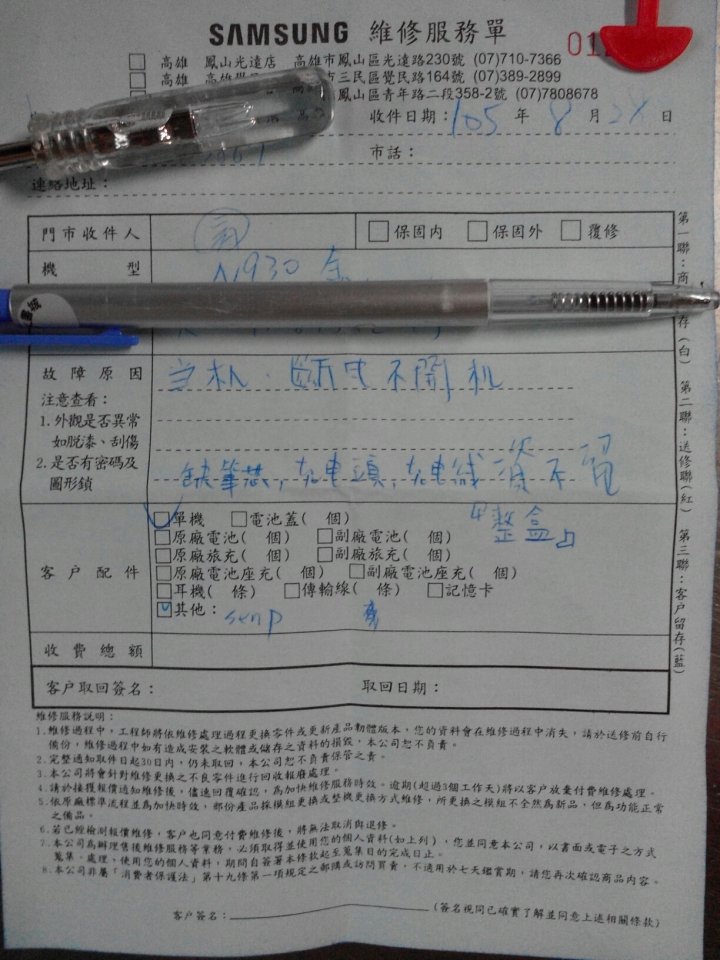 SAMSUNG 維修服務單
高雄 鳳山光遠店 高雄市鳳山區光遠路230號 (07)710-7366
高雄 市三民區覺民路164號 (07)389-2899
鳳山區青年路二段358-2號 (07)7808678
收件日期：105 年 8 月 28 日
市話：
連絡地址：
門市收件人 保固內 保固外 覆修
機型 N930 金
故障原因 当机．斷电不開机
注意查看：
1.外觀是否異常
如脫漆、刮傷
2.是否有密碼及
圖形鎖
缺筆芯，充电頭，充电线 资不留
客戶配件
單機 電池蓋( 個) 『整盒』
原廠電池( 個) 副廠電池( 個)
原廠旅充( 個) 副廠旅充( 個)
原廠電池座充( 個) 副廠電池座充( 個)
耳機( 條) 傳輸線( 條) 記憶卡
其他：
收費總額
客戶取回簽名： 取回日期：
第一聯：商 存(白) 第二聯：送修聯(紅) 第三聯：客戶留存(藍)
維修服務說明：
1.維修過程中，工程師將依維修處理過程更換零件或更新產品韌體版本，您的資料會在維修過程中消失，請於送修前自行
備份，維修過程中如有造成安裝之軟體或儲存之資料的損毀，本公司恕不負責。
2.完整通知取件日起30日內，仍未取回，本公司恕不負責保管之責。
3.本公司將會針對維修更換之不良零件進行回收報廢處理。
4.請於接獲報價通知維修後，儘速回覆確認，為加快維修服務時效。逾期(超過3個工作天)將以客戶放棄付費維修處理。
5.依原廠標準流程並為加快時效，部份產品採模組更換或整機更換方式維修，所更換之模組不全然為新品，但為功能正常
之備品。
6.若已經檢測報價維修，客戶也同意付費維修後，將無法取消與退修。
7.本公司為辦理售後維修服務等業務，必須取得並使用您的個人資料(如上列)，您並同意本公司，以書面或電子之方式
蒐集、處理、使用您的個人資料，期間自簽署本條款起至蒐集目的完成日止。
8.本公司非屬「消費者保護法」第十九條第一項規定之郵購或訪問買賣，不適用於七天鑑賞期，請您再次確認商品內容。
客戶簽名： (簽名視同已確實了解並同意上述相關條款)